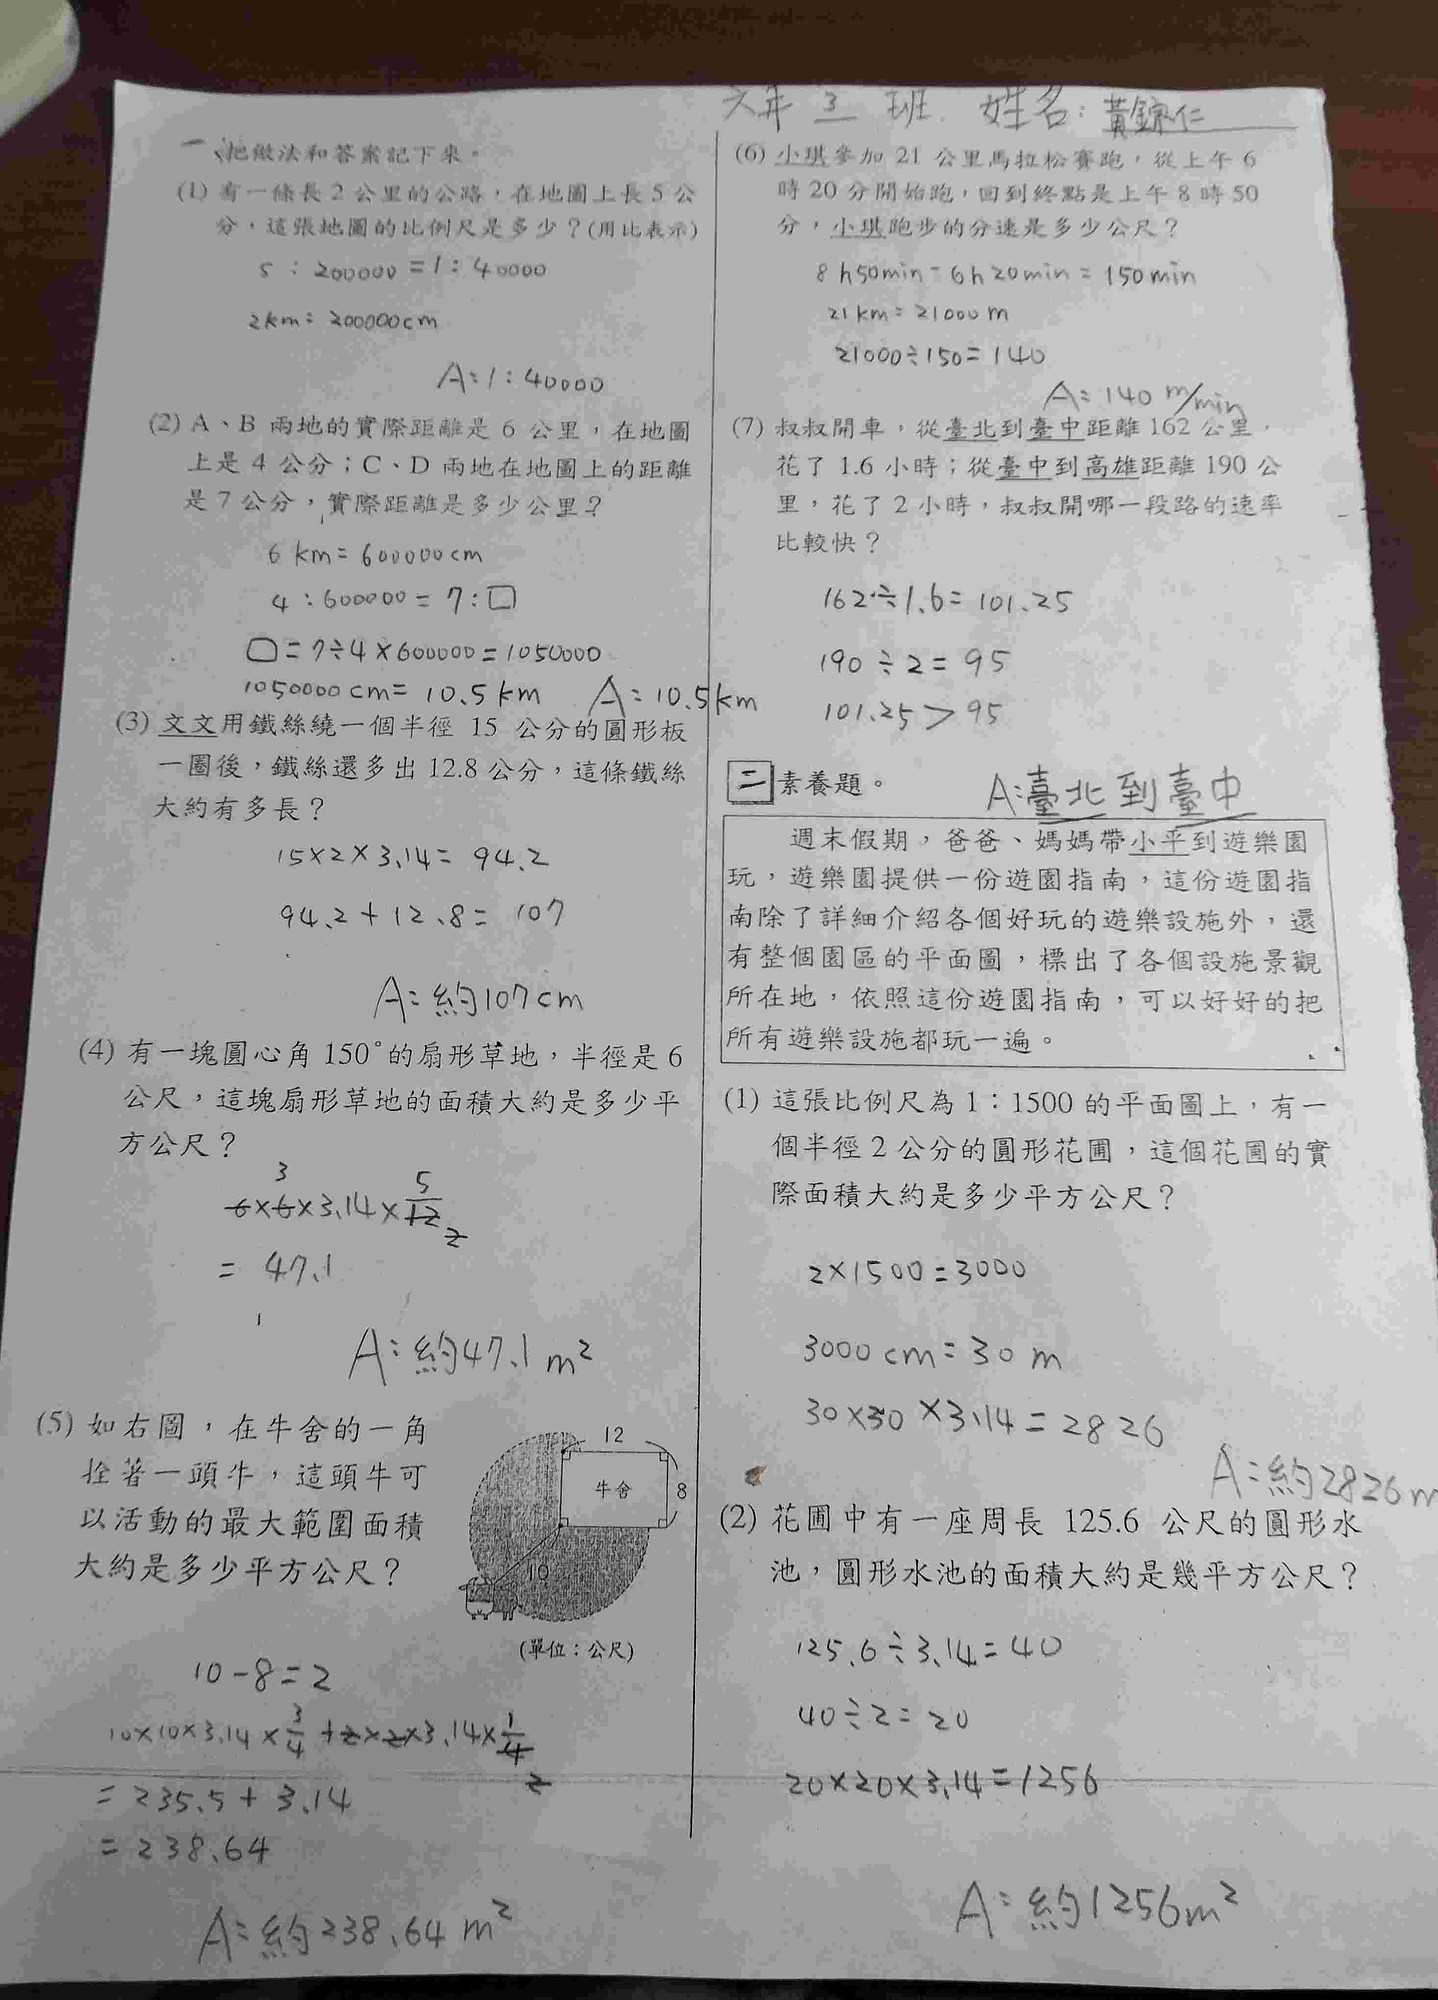 六年 3 班 姓名：黃鐌仁
一、把做法和答案記下來。
(1) 有一條長 2 公里的公路，在地圖上長 5 公
分，這張地圖的比例尺是多少？(用比表示)
5：200000 = 1：40000
2km = 200000cm
A：1：40000
(2) A、B 兩地的實際距離是 6 公里，在地圖
上是 4 公分；C、D 兩地在地圖上的距離
是 7 公分，實際距離是多少公里？
6 km = 600000cm
4：600000 = 7：□
□ = 7÷4×600000 = 1050000
1050000cm = 10.5km A：10.5km
(3) 文文用鐵絲繞一個半徑 15 公分的圓形板
一圈後，鐵絲還多出 12.8 公分，這條鐵絲
大約有多長？
15×2×3.14 = 94.2
94.2 + 12.8 = 107
A：約107cm
(4) 有一塊圓心角 150°的扇形草地，半徑是 6
公尺，這塊扇形草地的面積大約是多少平
方公尺？
3 5
6×6×3.14×12 2
= 47.1
A：約47.1 m²
(5) 如右圖，在牛舍的一角
拴著一頭牛，這頭牛可
以活動的最大範圍面積
大約是多少平方公尺？
12
牛舍 8
10
(單位：公尺)
10-8=2
10×10×3.14×3/4 + 2×2×3.14×1/4
2
= 235.5 + 3.14
= 238.64
A：約238.64 m²
(6) 小琪參加 21 公里馬拉松賽跑，從上午 6
時 20 分開始跑，回到終點是上午 8 時 50
分，小琪跑步的分速是多少公尺？
8h50min - 6h20min = 150min
21km = 21000m
21000÷150 = 140
A：140 m/min
(7) 叔叔開車，從臺北到臺中距離 162 公里，
花了 1.6 小時；從臺中到高雄距離 190 公
里，花了 2 小時，叔叔開哪一段路的速率
比較快？
162÷1.6 = 101.25
190÷2 = 95
101.25 > 95
A：臺北到臺中
二 素養題。
週末假期，爸爸、媽媽帶小平到遊樂園
玩，遊樂園提供一份遊園指南，這份遊園指
南除了詳細介紹各個好玩的遊樂設施外，還
有整個園區的平面圖，標出了各個設施景觀
所在地，依照這份遊園指南，可以好好的把
所有遊樂設施都玩一遍。
(1) 這張比例尺為 1：1500 的平面圖上，有一
個半徑 2 公分的圓形花圃，這個花圃的實
際面積大約是多少平方公尺？
2×1500 = 3000
3000cm = 30m
30×30×3.14 = 2826
A：約2826m
(2) 花圃中有一座周長 125.6 公尺的圓形水
池，圓形水池的面積大約是幾平方公尺？
125.6÷3.14 = 40
40÷2 = 20
20×20×3.14 = 1256
A：約1256m²